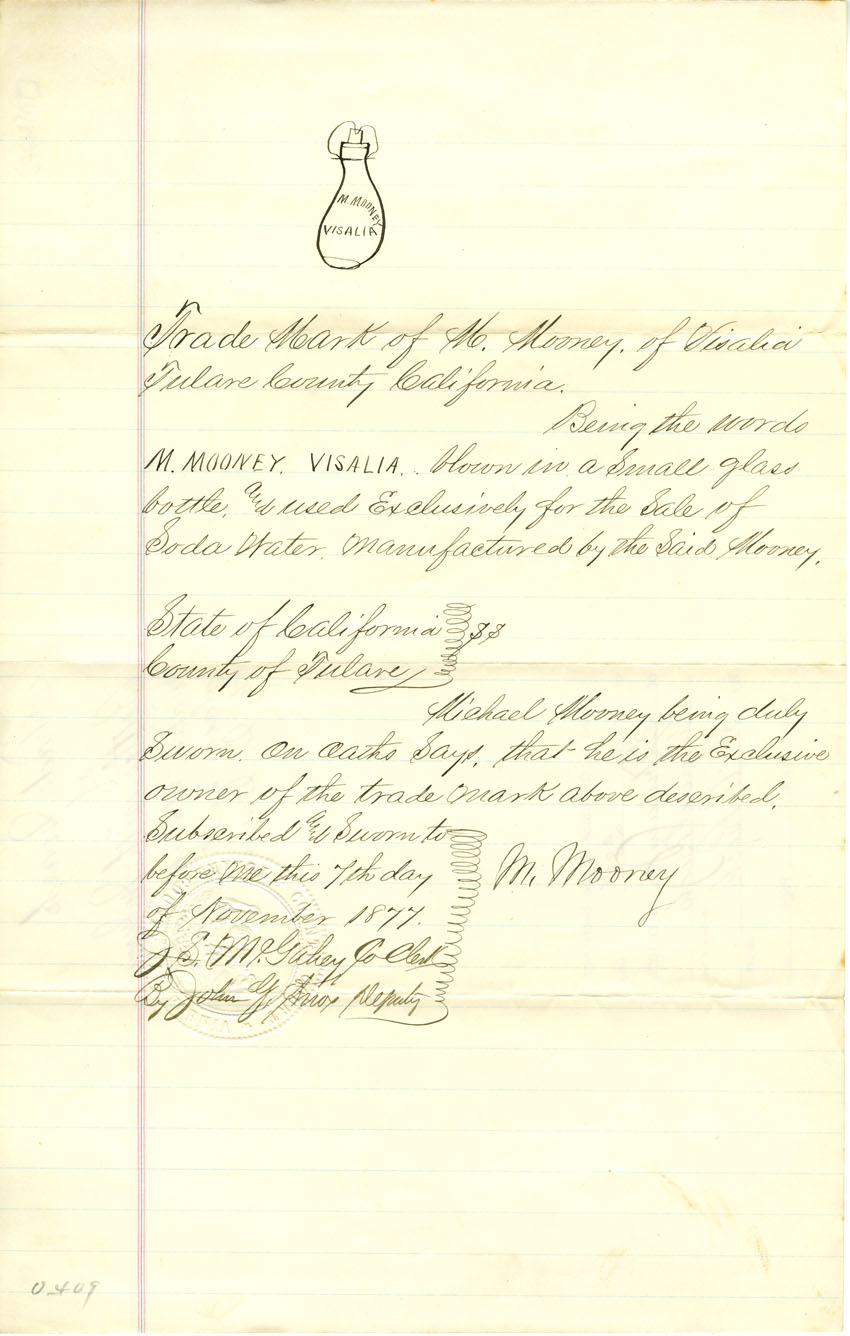 M. MOONEY
VISALIA
Trade Mark of M. Mooney. of Visalia
Tulare County California.
Being the words
M. MOONEY. VISALIA.. blown in a Small glass
bottle. and used Exclusively for the Sale of
Soda Water. Manufactured by the Said Mooney.
State of California } SS
County of Tulare
Michael Mooney being duly
Sworn. On oaths Says, that he is the Exclusive
owner of the trade Mark above described.
Subscribed and Sworn to
before Me this 7th day
M. Mooney
of November 1877.
J. E. McGahey Co Clerk
By John G. Knox Deputy
0409